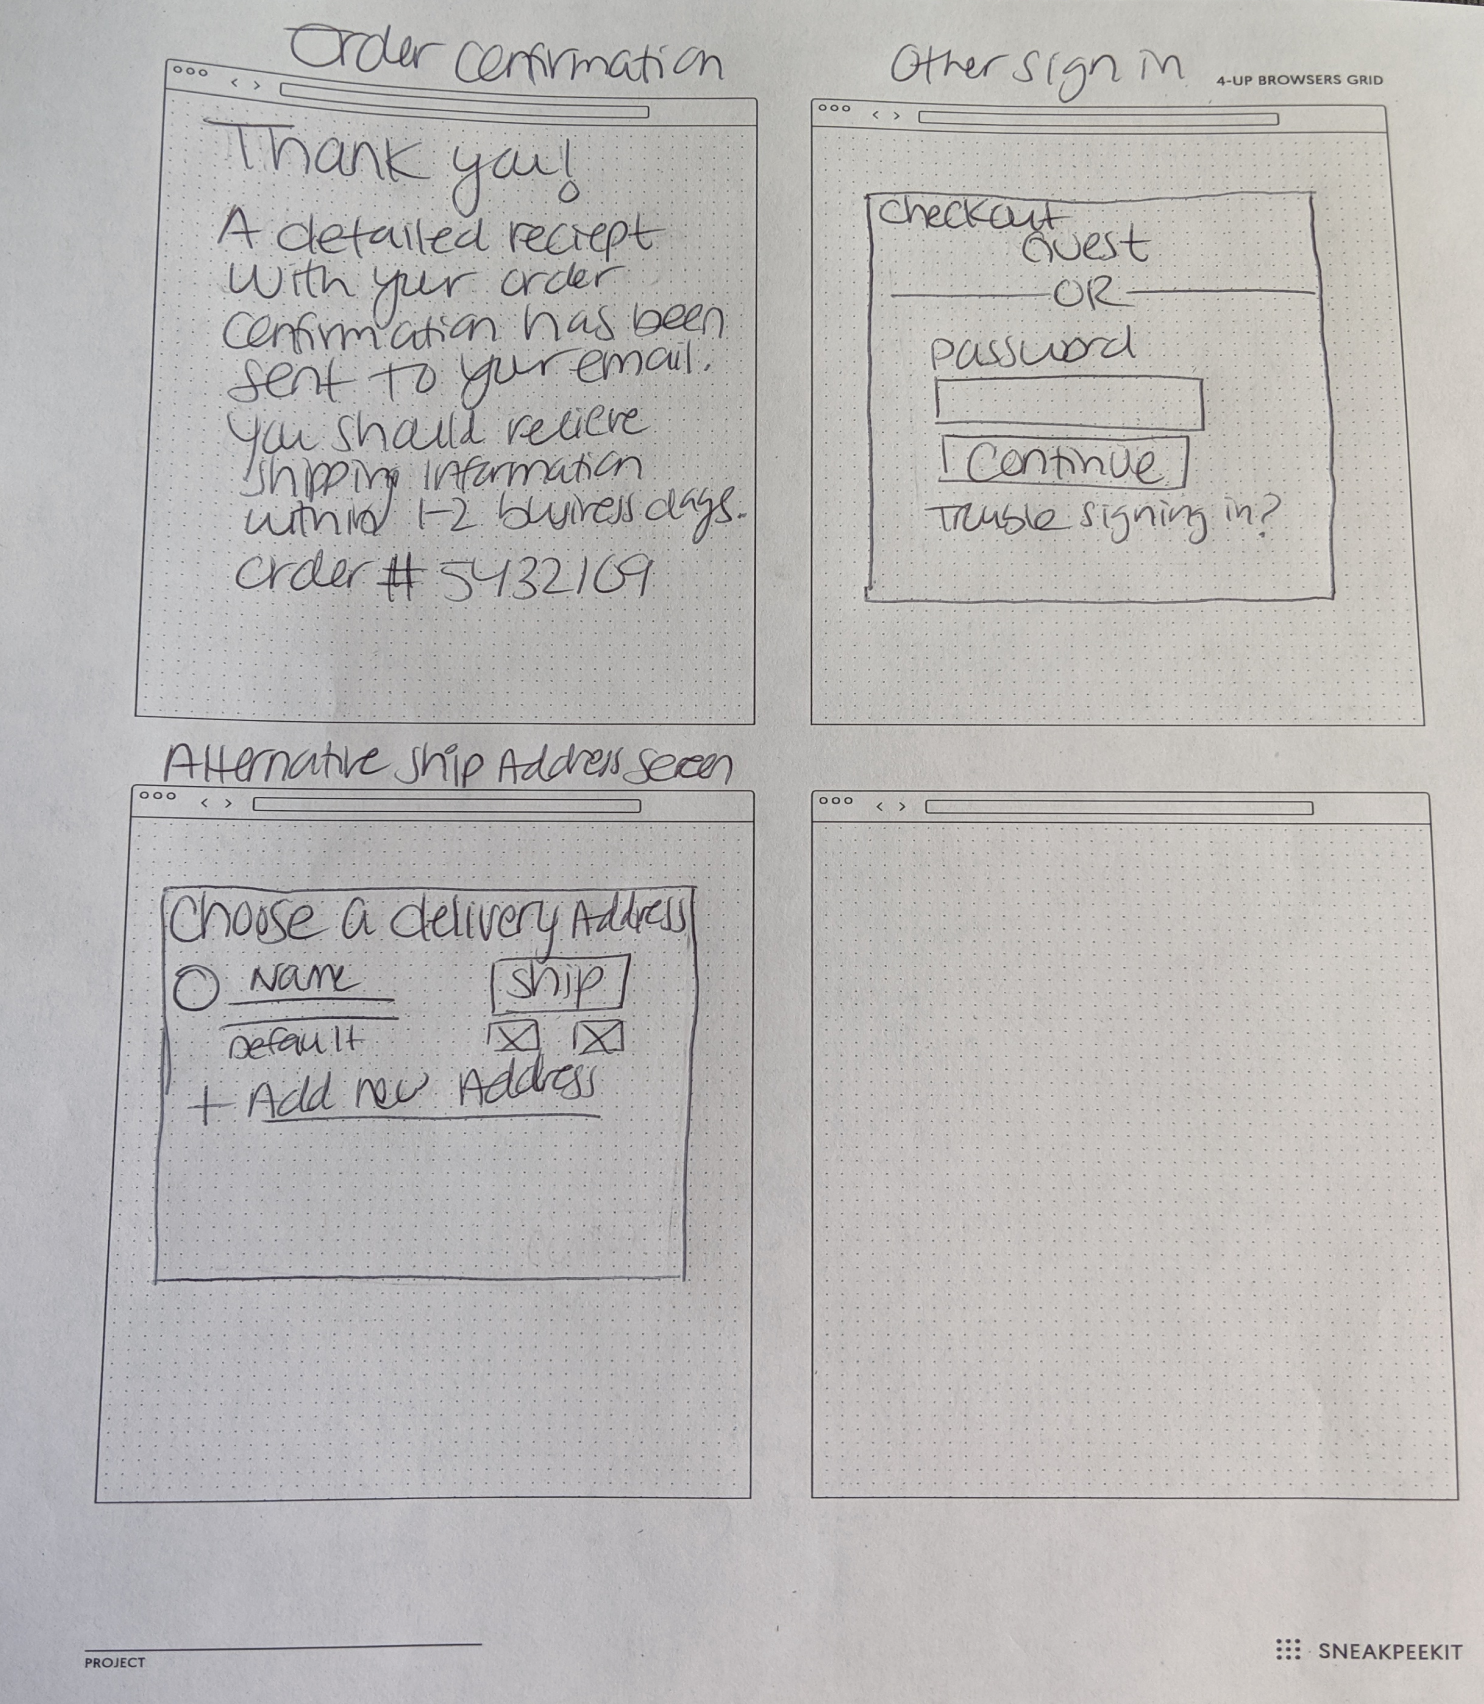 Order Confirmation
Thank you!
A detailed reciept
with your order
confirmation has been
sent to your email.
you should recieve
shipping information
within 1-2 business days.
order # 5432109
Other sign in
4-UP BROWSERS GRID
checkout
Guest
OR
password
Continue
Trouble signing in?
Alternative ship Address screen
Choose a delivery Address
Name
ship
Default
+ Add new Address
PROJECT
SNEAKPEEKIT